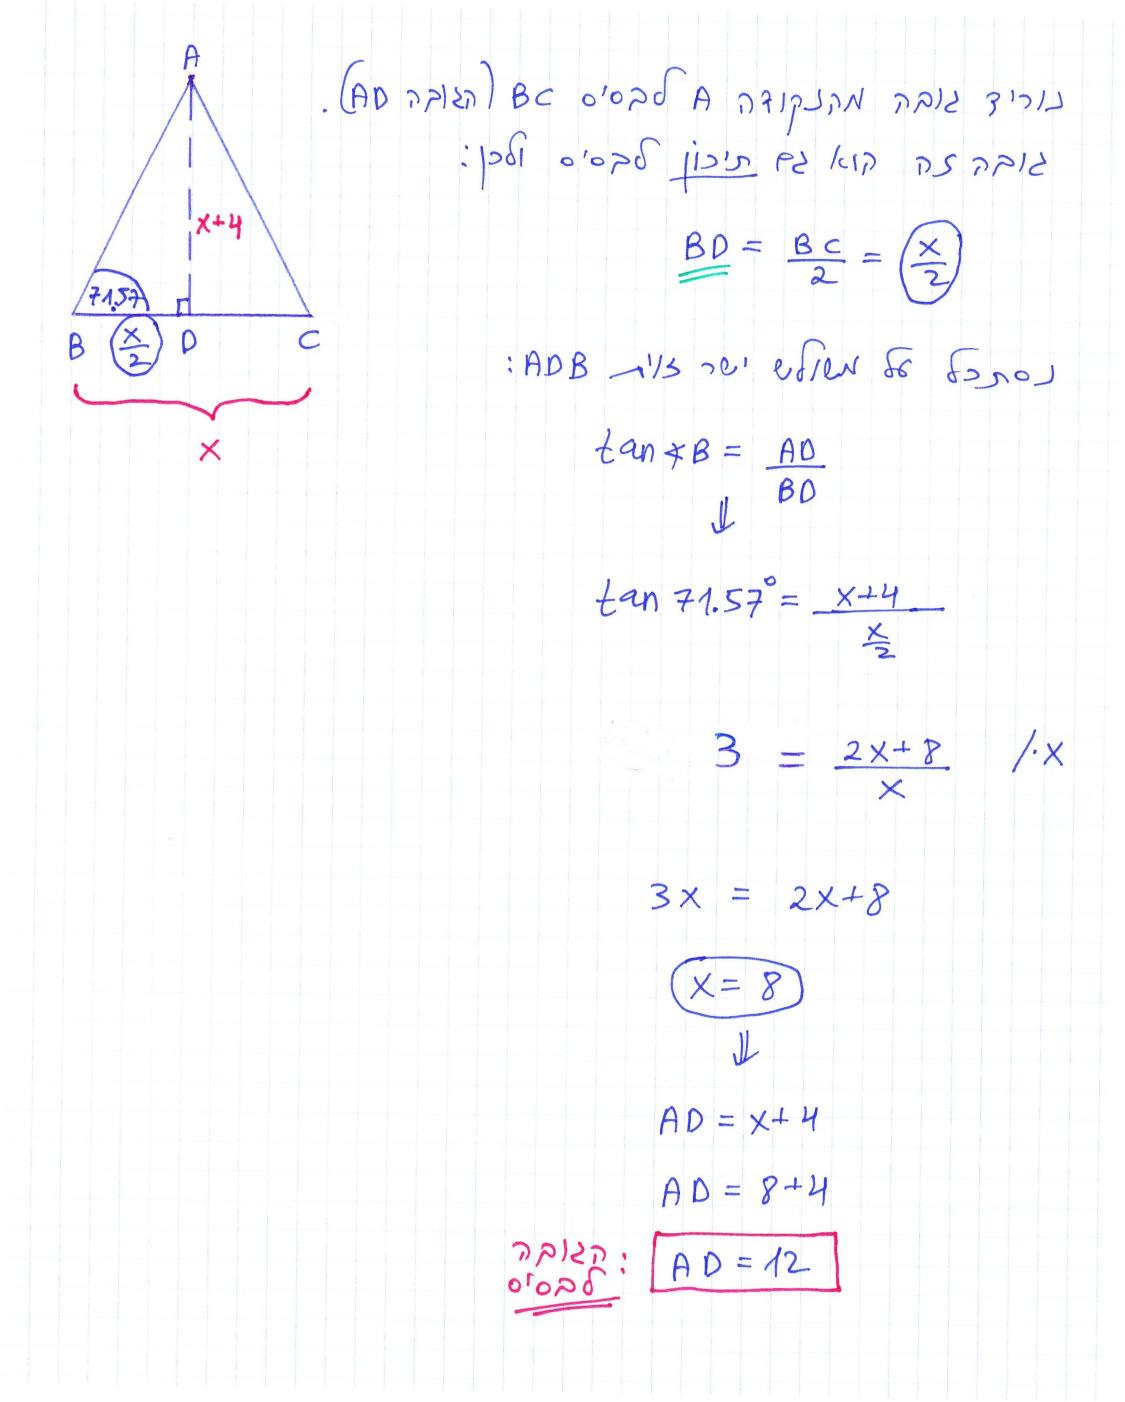 נוריד גובה מהנקודה A לבסיס BC (הגובה AD).
גובה זה הוא גם תיכון לבסיס ולכן:
BD = BC/2 = x/2
A
x+4
71.57
B x/2 D C
x
נסתכל על משולש ישר זוית ADB:
tan∢B = AD/BD
⇓
tan 71.57° = x+4/(x/2)
3 = 2x+8/x /·x
3x = 2x+8
x = 8
⇓
AD = x+4
AD = 8+4
הגובה לבסיס: AD = 12